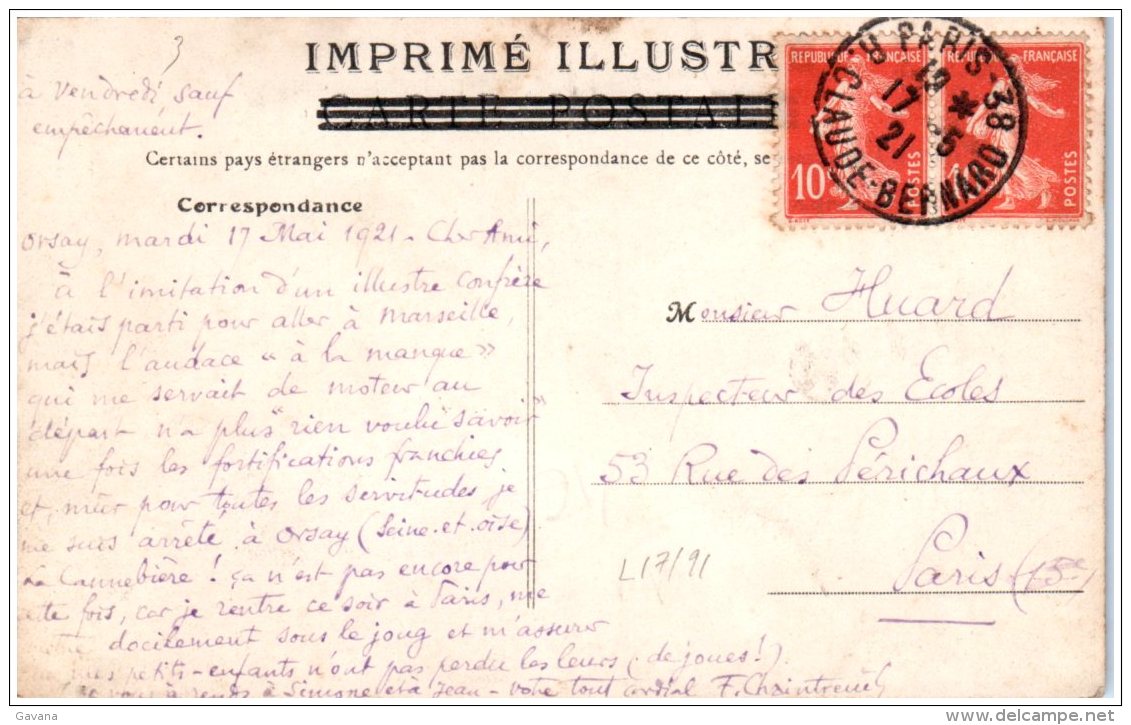 3
à vendredi, sauf
empêchement.
IMPRIMÉ ILLUSTR
CARTE POSTAL
Certains pays étrangers n'acceptant pas la correspondance de ce côté, se
REPUBLIQUE FRANÇAISE
10c
POSTES
REPUBLIQUE FRANÇAISE
POSTES
PARIS-38
R. CLAUDE-BERNARD
19 *
17 -5
21
Correspondance
Orsay, mardi 17 Mai 1921 - Cher Ami,
à l'imitation d'un illustre confrère
j'étais parti pour aller à Marseille,
mais l'audace « à la manque »
qui me servait de moteur au
départ n'a plus "rien voulu savoir"
une fois les fortifications franchies
et, mûr pour toutes les servitudes, je
me suis arrêté à Orsay (Seine-et-Oise)
La Cannebière ! ça n'est pas encore pour
cette fois, car je rentre ce soir à Paris, me
docilement sous le joug et m'assurer
mes petits-enfants n'ont pas perdu les leurs (de joues !)
à Simone et à Jean - votre tout cordial F. Chaintreuil
Monsieur Huard
Inspecteur des Ecoles
53 Rue des Périchaux
Paris (15e)
L17/91
Gavana
www.delcampe.net